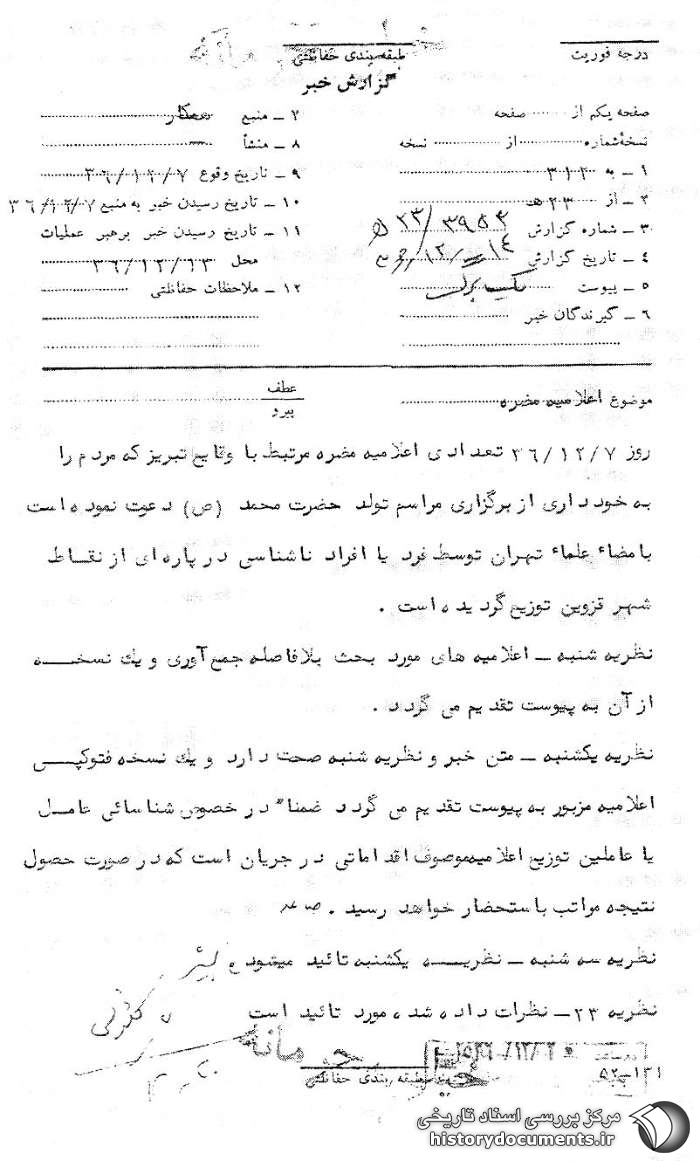 درجه فوریت
طبقه بندی حفاظتی
گزارش خبر
صفحه یکم از صفحه
نسخهٔ شماره از نسخه
۱ ـ به ۳۱۲
۲ ـ از ۲۳ هـ
۳ ـ شماره گزارش ۲۳/۳۹۵۴ هـ
۴ ـ تاریخ گزارش
۵ ـ پیوست یک برگ
۶ ـ گیرندگان خبر
۷ ـ منبع همکار
۸ ـ منشأ ـ
۹ ـ تاریخ وقوع ۳۶/۱۲/۷
۱۰ ـ تاریخ رسیدن خبر به منبع ۳۶/۱۲/۷
۱۱ ـ تاریخ رسیدن خبر برهبر عملیات
محل ۳۶/۱۲/۱۳
۱۲ ـ ملاحظات حفاظتی
موضوع اعلامیه مضره
عطف
پیرو
روز ۳۶/۱۲/۷ تعدادی اعلامیه مضره مرتبط با وقایع تبریز که مردم را
به خودداری از برگزاری مراسم تولد حضرت محمد (ص) دعوت نموده است
بامضاء علماء تهران توسط فرد یا افراد ناشناسی در پاره ای از نقاط
شهر قزوین توزیع گردیده است .
نظریه شنبه ـ اعلامیه های مورد بحث بلافاصله جمع آوری و یك نسخـــه
از آن به پیوست تقدیم می گردد .
نظریه یکشنبه ـ متن خبر و نظریه شنبه صحت دارد و یك نسخه فتوکپـی
اعلامیه مزبور به پیوست تقدیم می گردد ضمناً در خصوص شناسائی عامـل
یا عاملین توزیع اعلامیه موصوف اقداماتی در جریان است که در صورت حصول
نتیجه مراتب باستحضار خواهد رسید .
نظریه سه شنبه ـ نظریـــه یکشنبه تائید میشود
نظریه ۲۳ـ نظرات داده شده مورد تائید است
طبقه بندی حفاظتی
۵۲ـ۱۳۱
مرکز بررسی اسناد تاریخی
historydocuments.ir